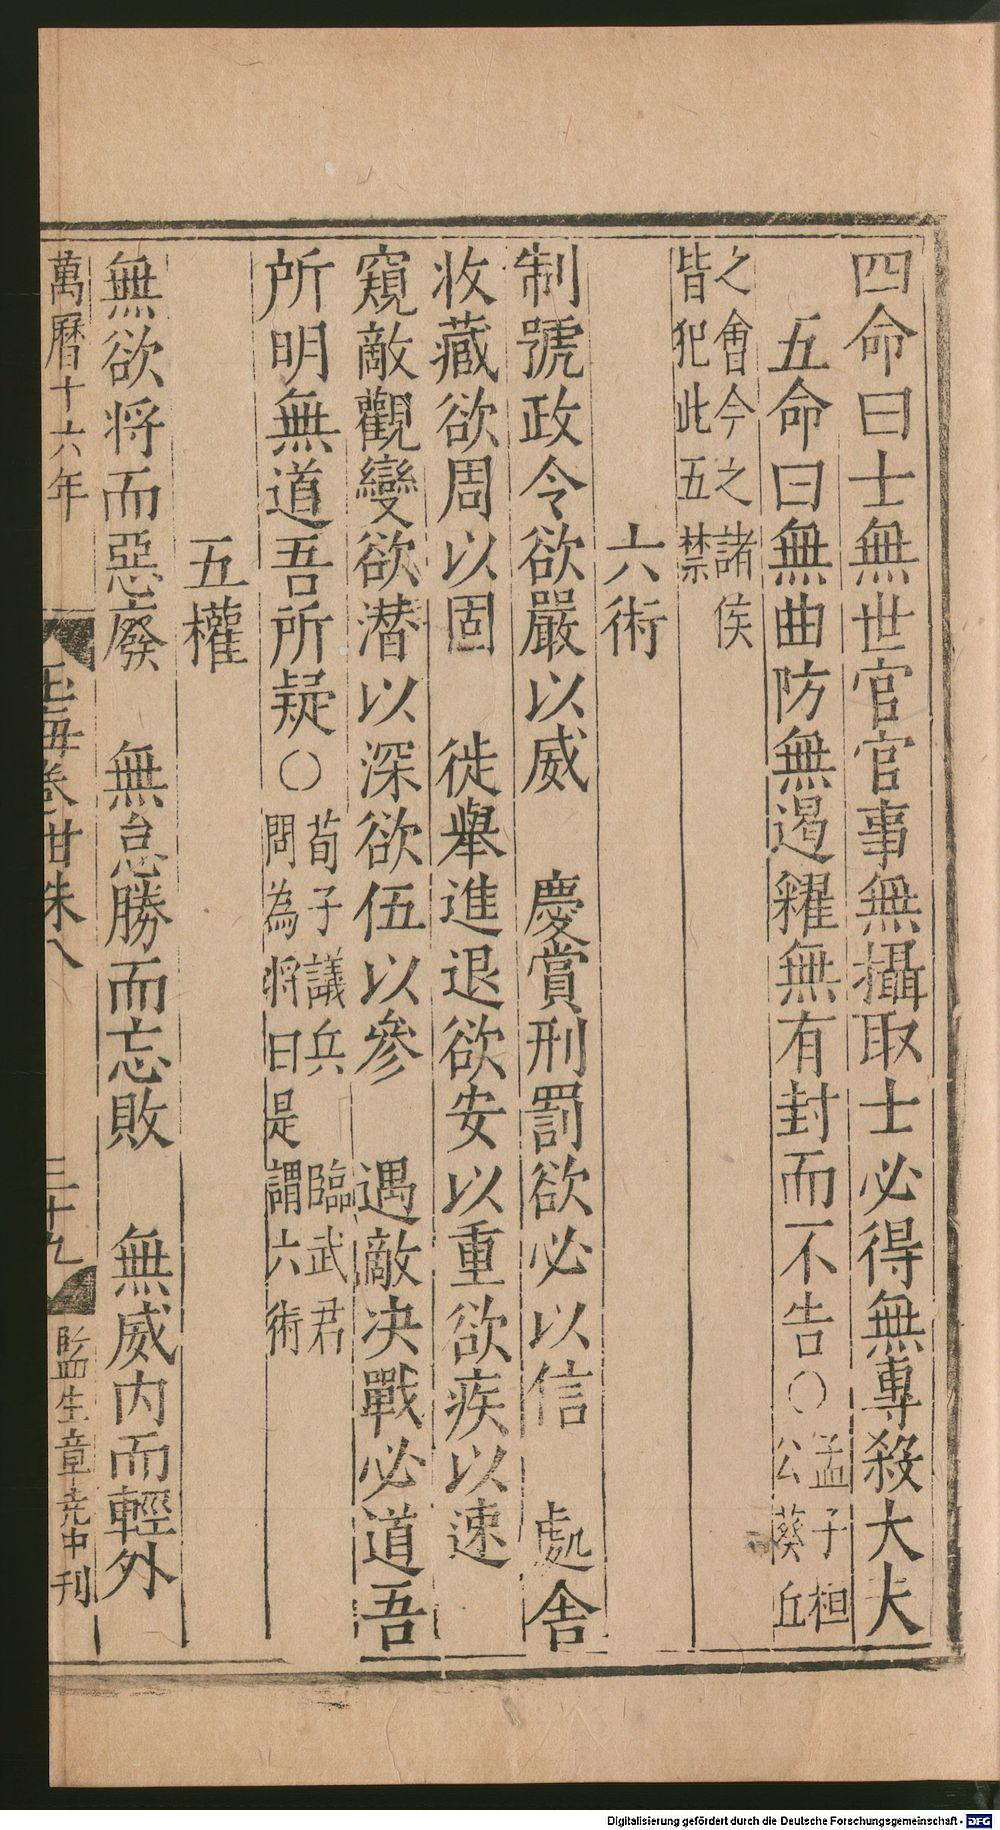 四命曰士無世官官事無攝取士必得無專殺大夫
五命曰無曲防無遏糴無有封而不告○孟子桓公葵丘
之會今之諸侯皆犯此五禁
六術
制號政令欲嚴以威 慶賞刑罰欲必以信 處舍
收藏欲周以固 徙舉進退欲安以重欲疾以速
窺敵觀變欲潜以深欲伍以參 遇敵决戰必道吾
所明無道吾所疑○荀子議兵 臨武君問為將曰是謂六術
五權
無欲将而惡廢 無怠勝而忘敗 無威内而輕外
萬曆十六年 玉海卷廿末八 三十九 監生章 中刊
Digitalisierung gefördert durch die Deutsche Forschungsgemeinschaft - DFG